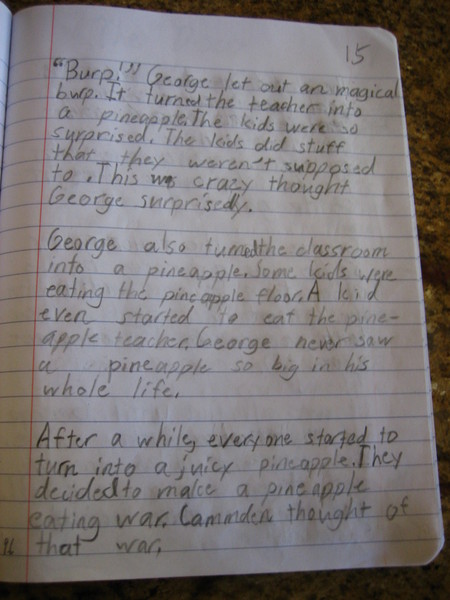 15
"Burp!" George let out an magical
burp. It turned the teacher into
a pineapple. The kids were so
surprised. The kids did stuff
that they weren't supposed
to. This was crazy thought
George surprisedly.
George also turned the classroom
into a pineapple. Some kids were
eating the pineapple floor. A kid
even started to eat the pine-
apple teacher. George never saw
a pineapple so big in his
whole life.
After a while, everyone started to
turn into a juicy pineapple. They
decided to make a pineapple
eating war. Cammden thought of
that war.
16